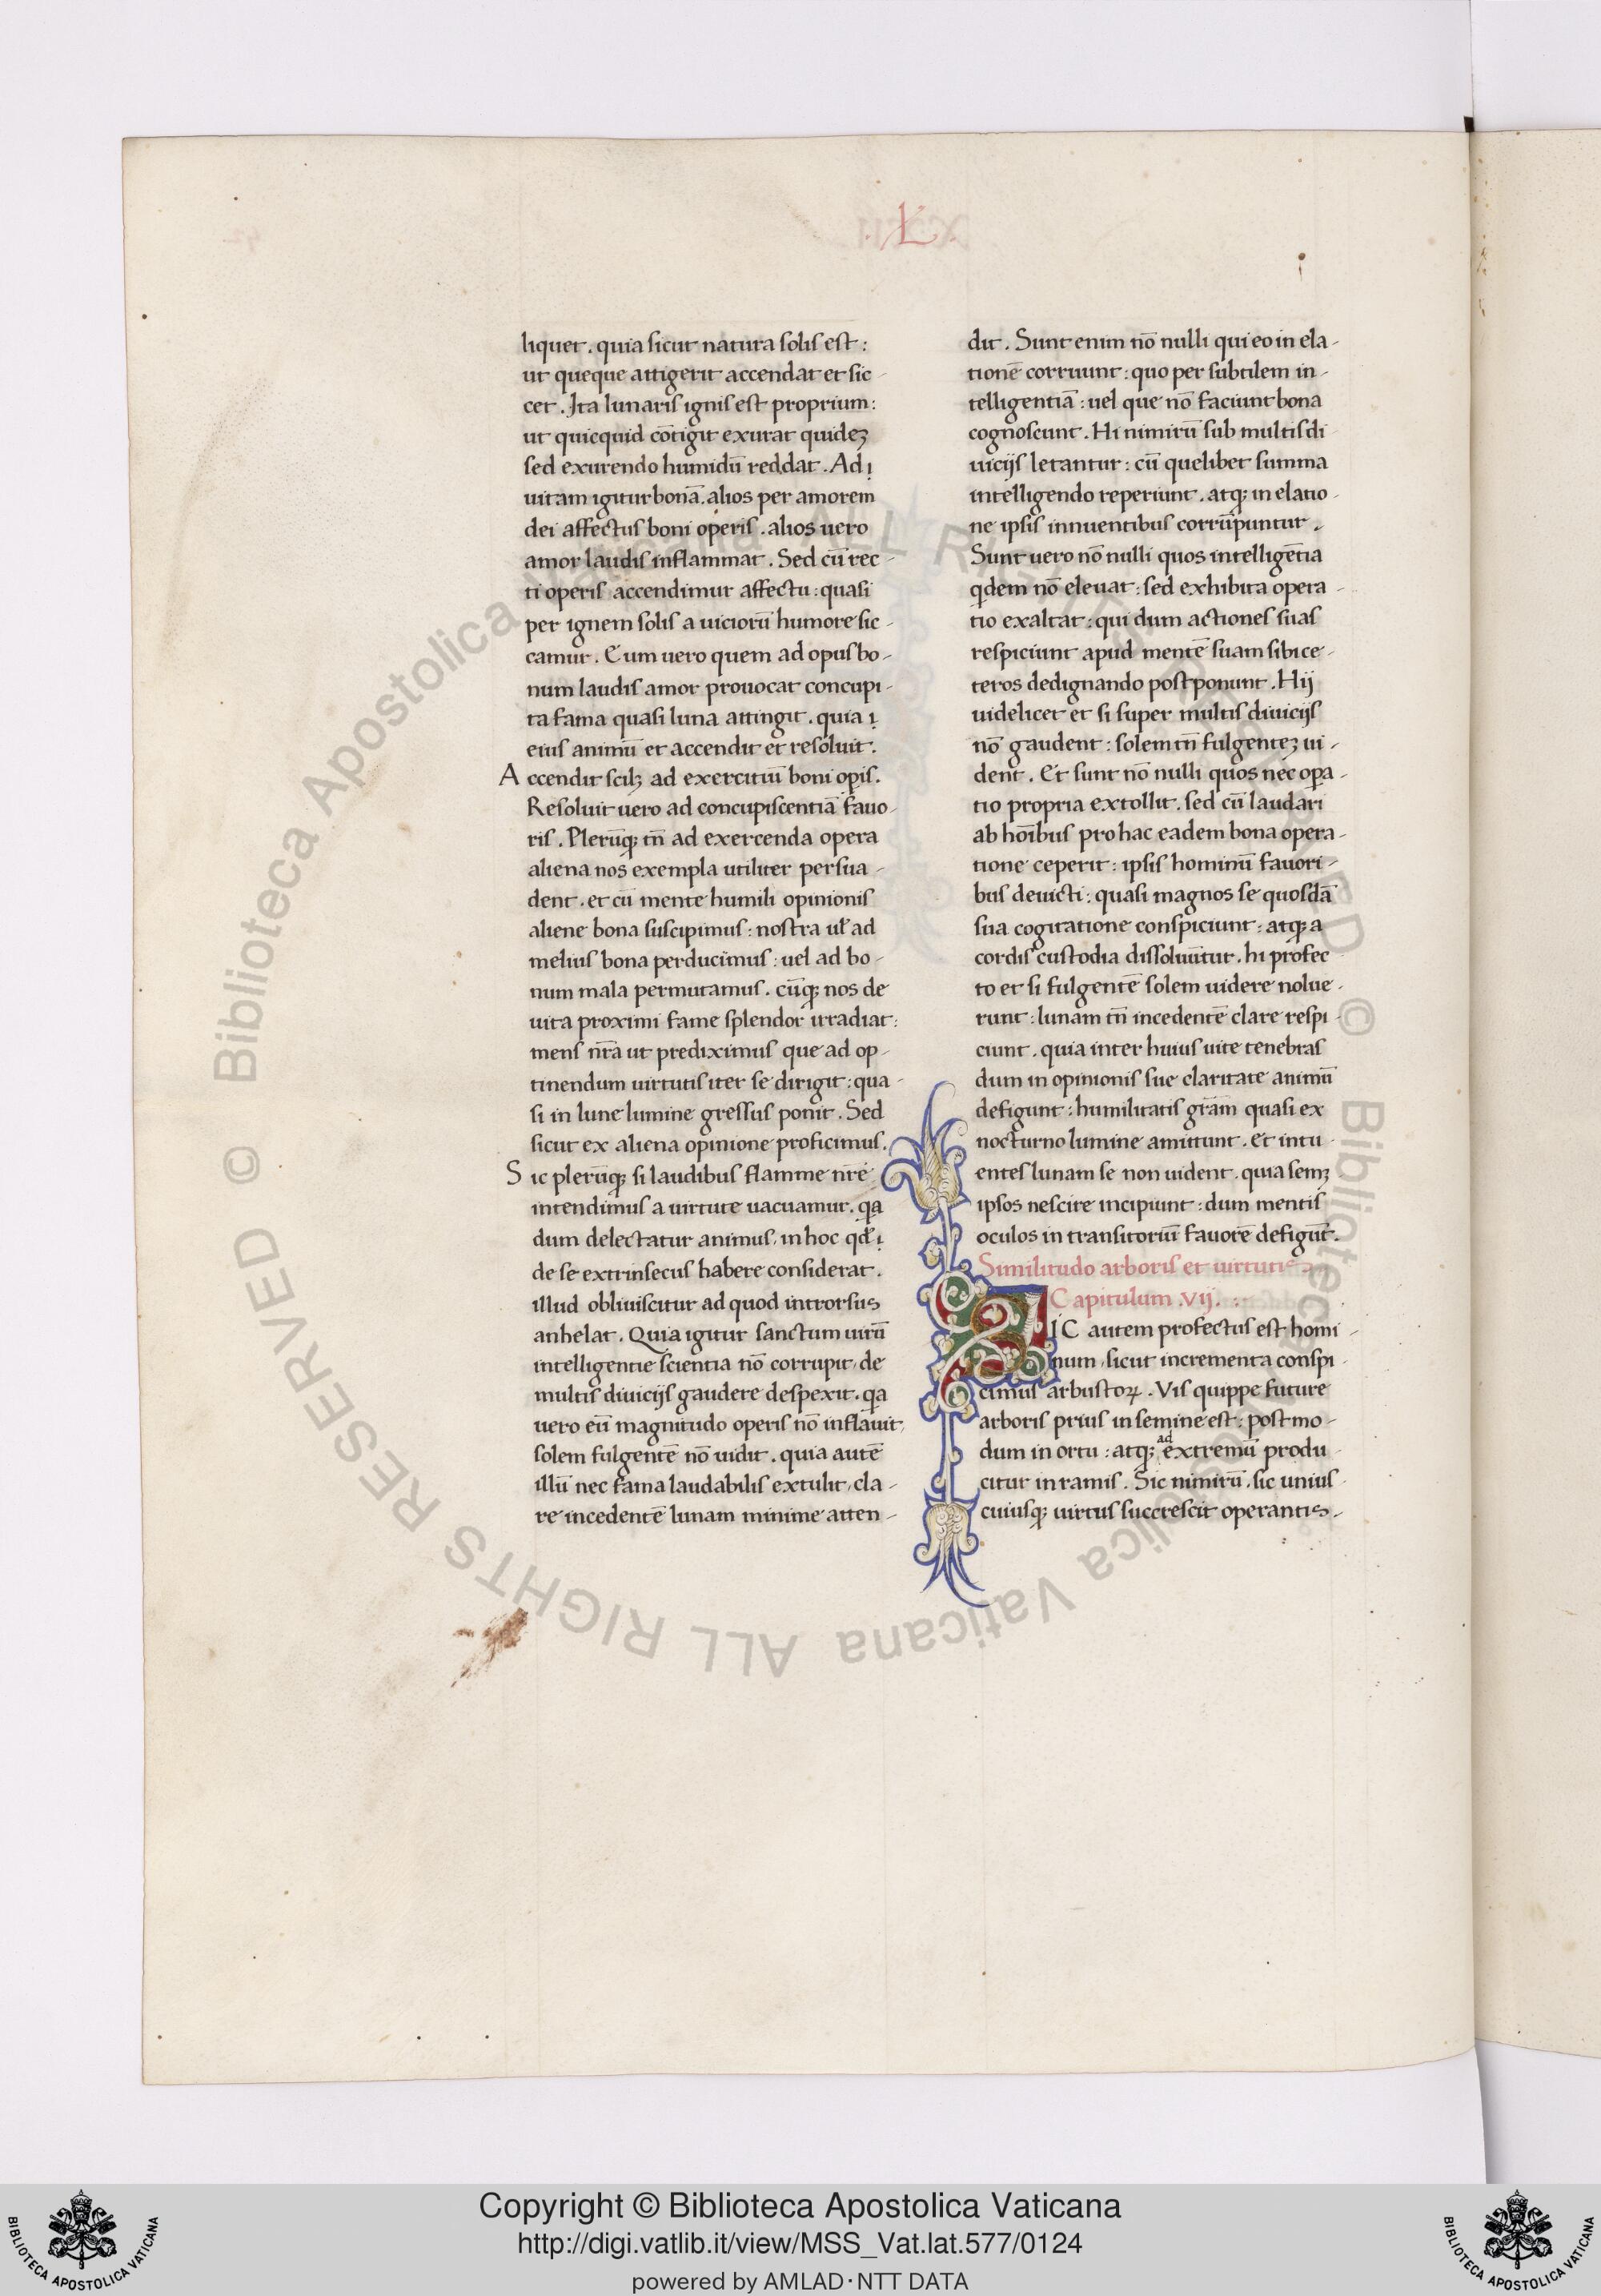 .L.
liquet. quia sicut natura solis est:
ut queque attigerit accendat et sic-
cet. Ita lunaris ignis est proprium:
ut quicquid cōtigit exurat quideꝫ
sed exurendo humidū reddat. Ad
uitam igitur bonā. alios per amorem
dei affectus boni operis. alios uero
amor laudis inflammat. Sed cū rec-
ti operis accendimur affectu: quasi
per ignem solis a uiciorū humore sic-
camur. Eum uero quem ad opus bo-
num laudis amor prouocat concupi-
ta fama quasi luna attingit. quia
eius animū et accendit et resoluit.
Accendit scilꝫ ad exercitiū boni op̄is.
Resoluit uero ad concupiscentiā fauo-
ris. Plerūqꝫ tn̄ ad exercenda opera
aliena nos exempla utiliter persua-
dent. et cū mente humili opinionis
aliene bona suscipimus: nostra ul̄ ad
melius bona perducimus: uel ad bo-
num mala permutamus. cūqꝫ nos de
uita proximi fame splendor irradiat:
mens nr̄a ut prediximus que ad op-
tinendum uirtutis iter se dirigit: qua-
si in lune lumine gressus ponit. Sed
sicut ex aliena opinione proficimus.
Sic plerūqꝫ si laudibus flamme nr̄e
intendimus a uirtute uacuamur. qa
dum delectatur animus, in hoc qd̄
de se extrinsecus habere considerat.
illud obliuiscitur ad quod introrsus
anhelat. Quia igitur sanctum uirū
intelligentie scientia nō corrupit, de
multis diuicijs gaudere despexit. qa
uero eū magnitudo operis nō inflāuit,
solem fulgentē nō uidit. quia autē
illū nec fama laudabilis extulit, cla-
re incedentē lunam minime atten-
dit. Sunt enim nō nulli qui eo in ela-
tionē corruunt: quo per subtilem in-
telligentiā: uel que nō faciunt bona
cognoscunt. Hi nimirū sub multis di
uicijs letantur: cū quelibet summa
intelligendo reperiunt. atqꝫ in elatio-
ne ipsis innuentibus corrūpuntur.
Sunt uero nō nulli quos intelligētia
qdem nō eleuat: sed exhibita opera-
tio exaltat: qui dum actiones suas
respiciunt apud mentē suam sibi ce-
teros dedignando postponunt. Hij
uidelicet et si super multis diuicijs
nō gaudent: solem tn̄ fulgenteꝫ ui-
dent. Et sunt nō nulli quos nec opa-
tio propria extollit. sed cū laudari
ab hoībus pro hac eadem bona opera-
tione ceperit: ipsis hominū fauori-
bus deuicti: quasi magnos se quosdā
sua cogitatione conspiciunt: atqꝫ a
cordis custodia dissoluūtur. hi profec
to et si fulgentē solem uidere nolue-
runt: lunam tn̄ incedentē clare respi-
ciunt. quia inter huius uite tenebras
dum in opinionis sue claritate animū
defigunt: humilitatis gr̄am quasi ex
nocturno lumine amittunt. et intu-
entes lunam se non uident. quia semꝫ
ipsos nescire incipiunt: dum mentis
oculos in transitoriū fauorē defigūt.
Similitudo arboris et uirtutis.
Capitulum .VIJ.
SIC autem profectus est homi-
num, sicut incrementa conspi-
cimus arbustoꝝ. Vis quippe future
arboris prius in semine est: post mo-
dum in ortu: atqꝫ ad extremū produ-
citur in ramis. Sic nimirū. sic unius-
cuiusqꝫ uirtus succrescit operantis.
© Biblioteca Apostolica Vaticana ALL RIGHTS RESERVED © Biblioteca Apostolica Vaticana ALL RIGHTS RESERVED
BIBLIOTECA APOSTOLICA VATICANA
Copyright © Biblioteca Apostolica Vaticana
http://digi.vatlib.it/view/MSS_Vat.lat.577/0124
powered by AMLAD·NTT DATA
BIBLIOTECA APOSTOLICA VATICANA